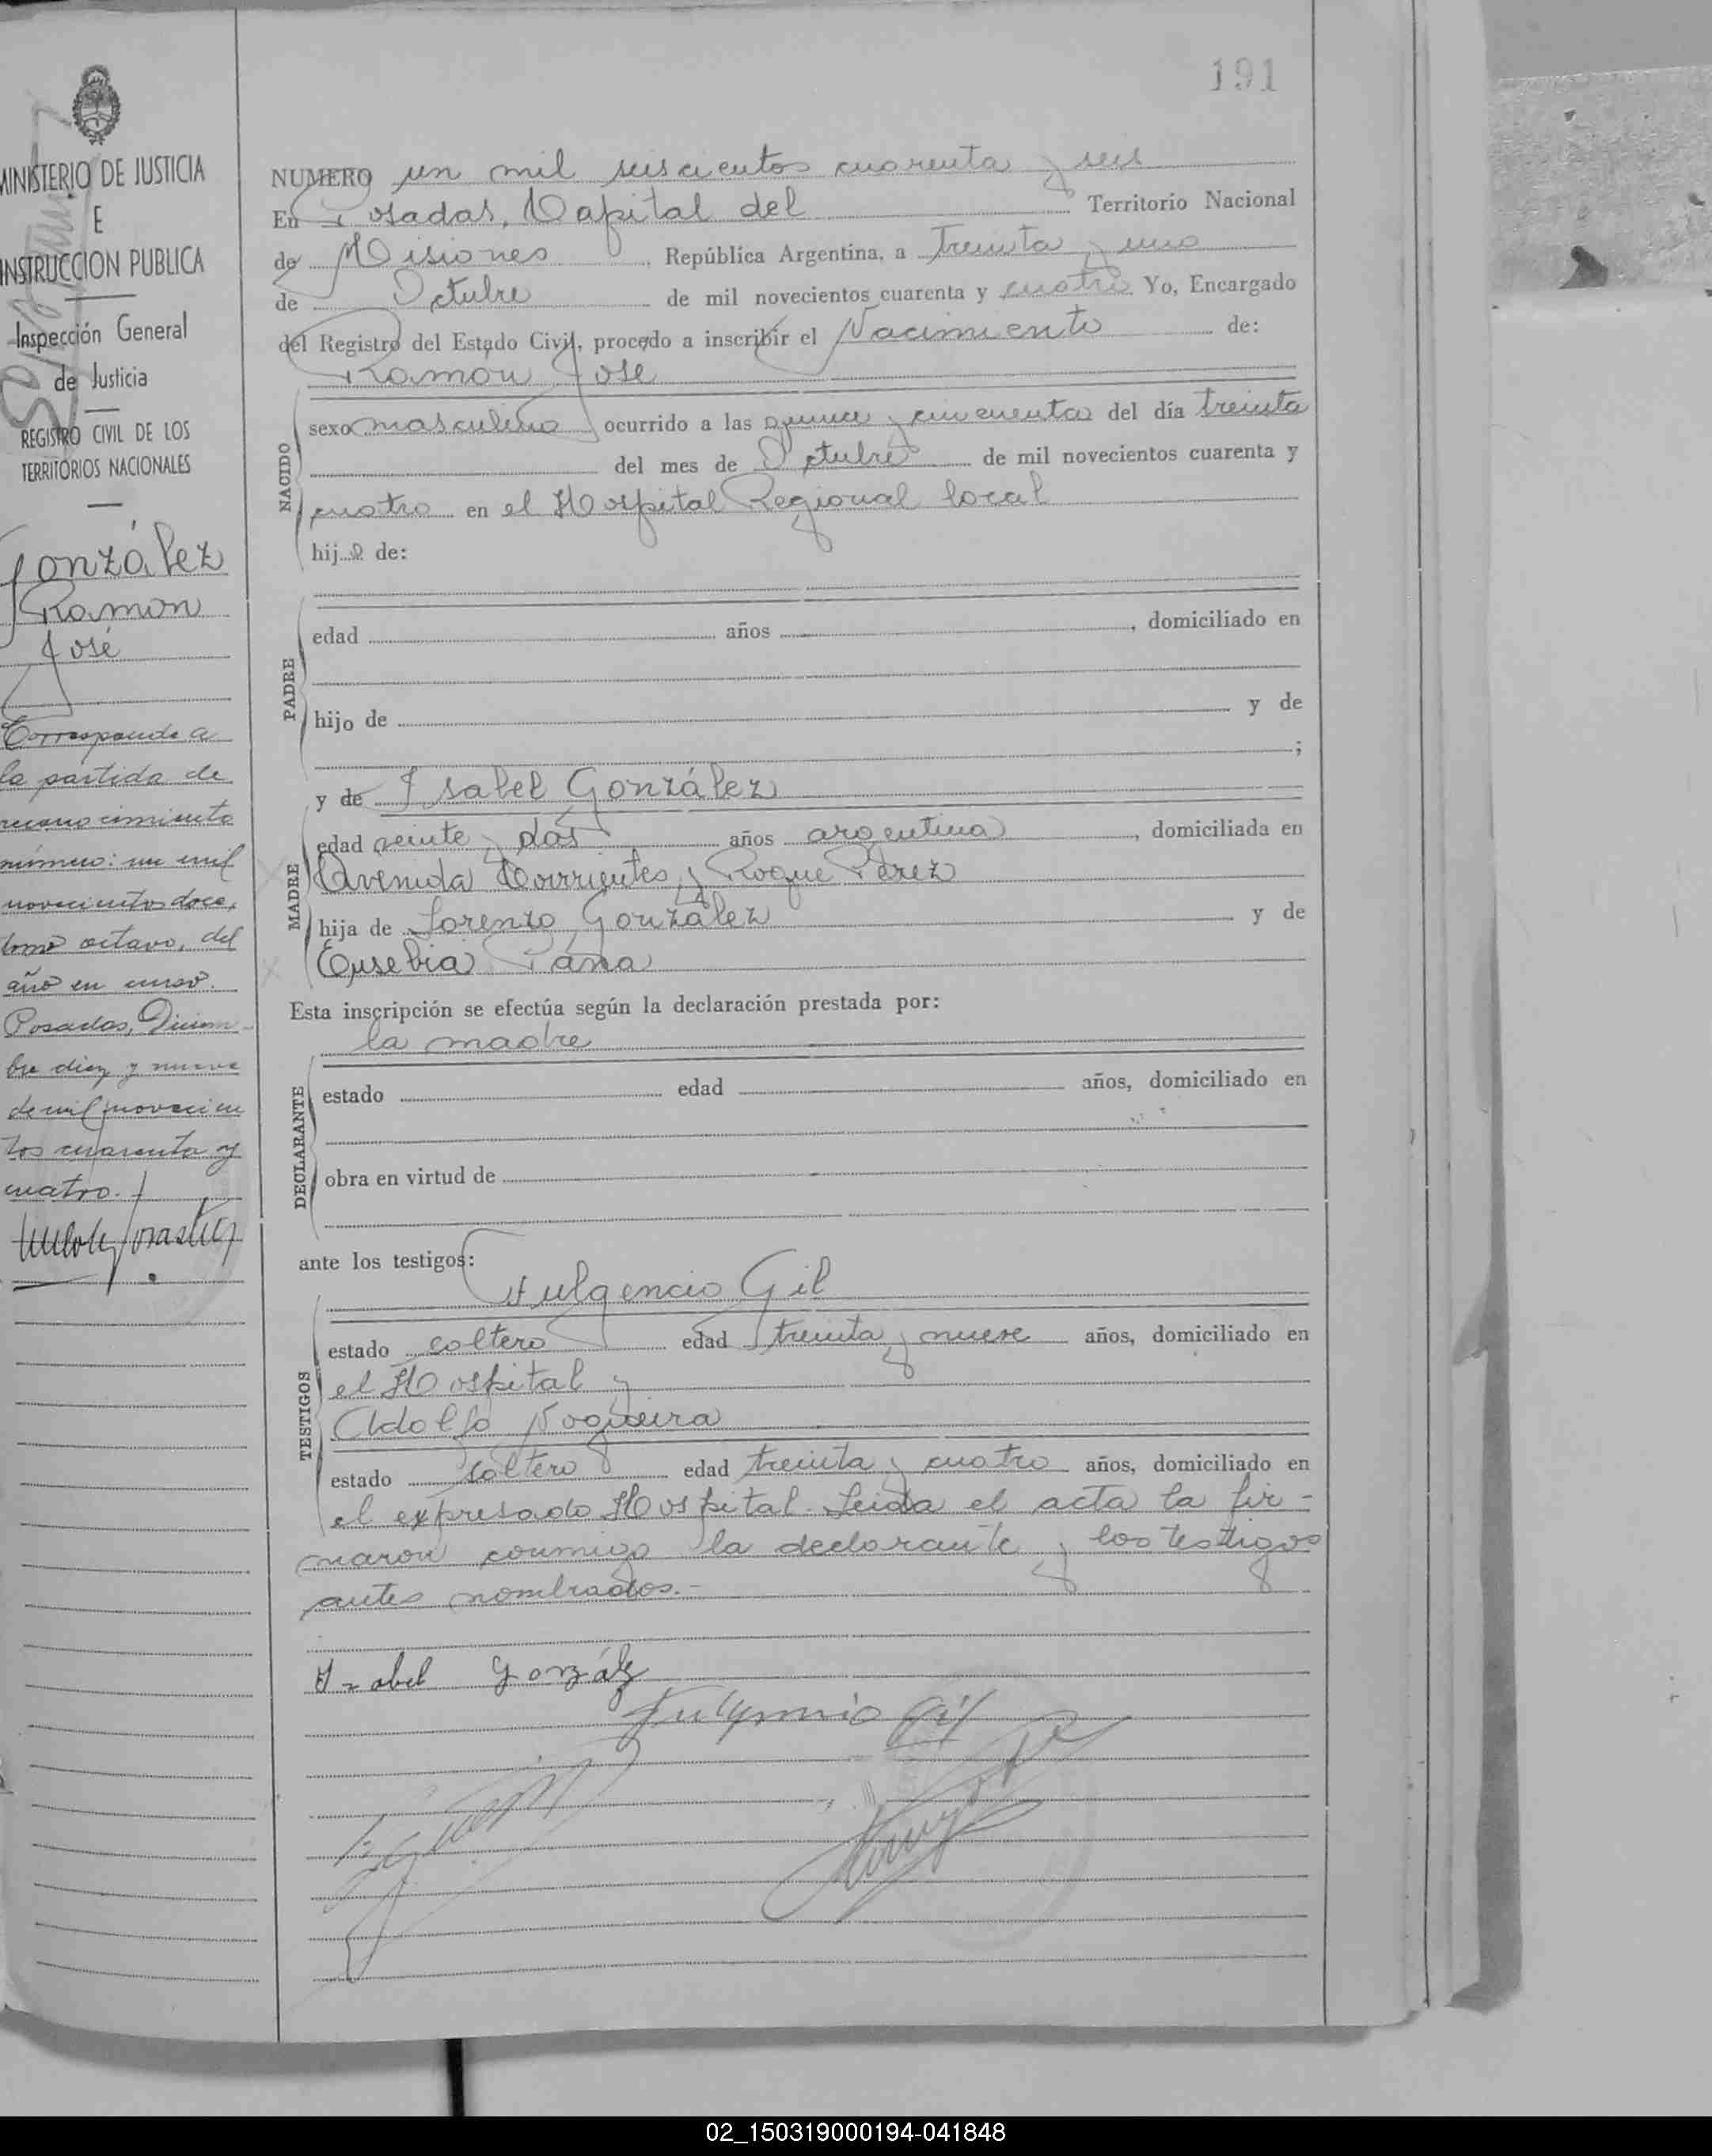 191
MINISTERIO DE JUSTICIA
E
INSTRUCCION PUBLICA
Inspección General
de Justicia
REGISTRO CIVIL DE LOS
TERRITORIOS NACIONALES
González
Ramon
José
Corresponde a
la partida de
reconocimiento
número: un mil
novecientos doce,
tomo octavo, del
año en curso.
Posadas, Diciem-
bre diez y nueve
de mil novecien
tos cuarenta y
cuatro.
NUMERO un mil seiscientos cuarenta y seis
En Posadas, Capital del Territorio Nacional
de Misiones República Argentina, a treinta y uno
de Octubre de mil novecientos cuarenta y cuatro Yo, Encargado
del Registro del Estado Civil, procedo a inscribir el Nacimiento de:
Ramon José
NACIDO
sexo masculino ocurrido a las quince y cincuenta del día treinta
del mes de Octubre de mil novecientos cuarenta y
cuatro en el Hospital Regional local
hijo de:
PADRE
edad años , domiciliado en
hijo de y de
;
MADRE
y de Isabel González
edad veinte y dos años argentina , domiciliada en
Avenida Corrientes y Roque Pérez
hija de Lorenzo González y de
Eusebia
Esta inscripción se efectúa según la declaración prestada por:
la madre
DECLARANTE
estado edad años, domiciliado en
obra en virtud de
ante los testigos:
Fulgencio Gil
TESTIGOS
estado soltero edad treinta y nueve años, domiciliado en
el Hospital y
Adolfo Nogueira
estado soltero edad treinta y cuatro años, domiciliado en
el expresado Hospital. Leida el acta la fir-
maron conmigo la declarante y los testigos
antes nombrados.-
Izabel Gonzálz
Fulgencio Gil
02_150319000194-041848